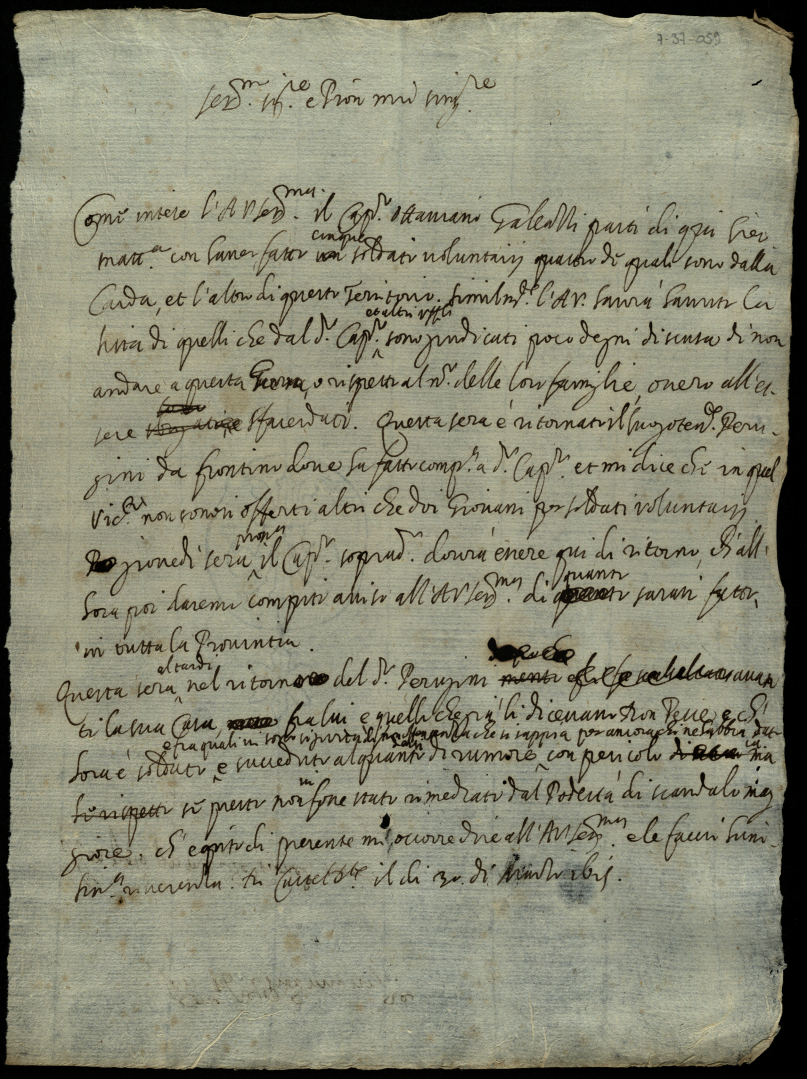 7-37-059
Ser.mo Sig.re e Pron mio sing.re
Come intese l'A V Ser.ma il Cap.o Ottaviano Galeotti partì di qui hier
matt.a con haver fatto cinque soldati voluntarij quattro de quali sono dalla
Carda, et l'altro di questo Territorio. Similm.te l'A.V. havrà havuto la
lista di quelli che dal d.o Cap.o et altri uff.li sono giudicati poco degni di scusa di non
andare a questa Guerra, o rispetto al n.o delle loro famiglie, overo all'es-
sere sfacendati. Questa sera è ritornato il luogoten.te Peru-
gini da frontino dove ha fatto comp.a a d.o Cap.o et mi dice che in quel
Vic.to non sonosi offerti altri che doi Giovani per soldati voluntarij
giovedì sera il Cap.o soprad.o dovrà essere qui di ritorno, ch'all'
hora poi daremo compito aviso all'A V Ser.ma di quanto sarassi fatto
in tutta la Provintia.
Questa sera al tardi nel ritorno del d.o Perugini
ti la sua Casa, fra lui e quelli che già li dicevano Don
hora è soldato, e succeduto alquanto di rumore con pericolo
se presto non fosse stato rimediato dal Podestà di scandalo mag
giore. Ch'è quanto di presente mi occorre dire all'A V Ser.ma e le faccio humi-
liss.a riverenza. Di il di 30. di